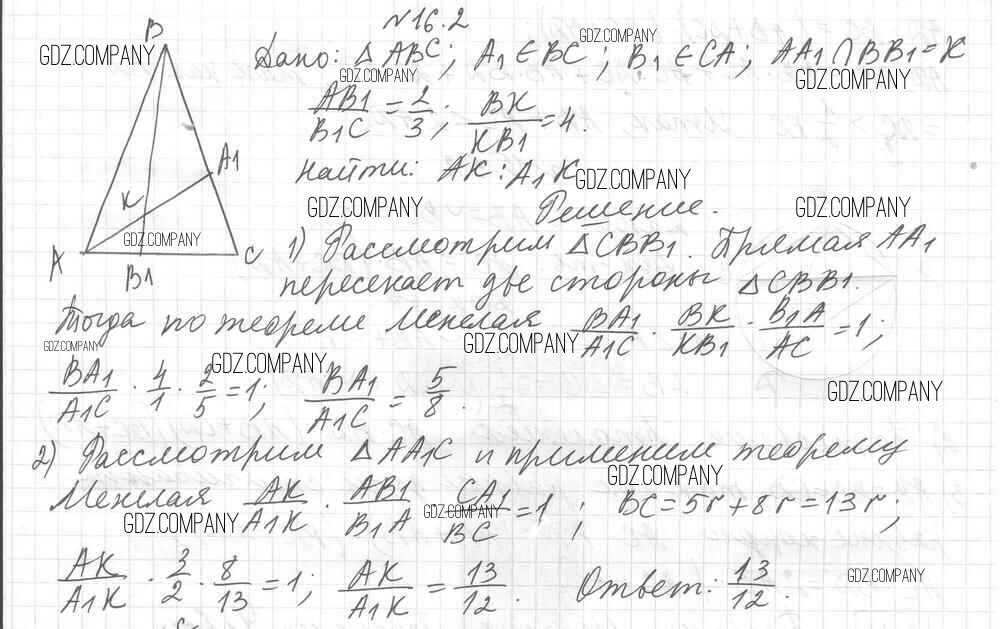 №16.2
B
GDZ.COMPANY
GDZ.COMPANY
Дано: △ABC; A₁∈BC; B₁∈CA; AA₁∩BB₁=K
GDZ.COMPANY
GDZ.COMPANY
AB₁/B₁C = 2/3; BK/KB₁ = 4.
A₁
Найти: AK:A₁K
GDZ.COMPANY
K
GDZ.COMPANY
Решение.
GDZ.COMPANY
GDZ.COMPANY
A
B₁
C
1) Рассмотрим △CBB₁. Прямая AA₁
пересекает две стороны △CBB₁.
Тогда по теореме Менелая BA₁/A₁C · BK/KB₁ · B₁A/AC = 1;
GDZ.COMPANY
GDZ.COMPANY
GDZ.COMPANY
BA₁/A₁C · 4/1 · 2/5 = 1; BA₁/A₁C = 5/8.
GDZ.COMPANY
2) Рассмотрим △AA₁C и применим теорему
GDZ.COMPANY
Менелая AK/A₁K · AB₁/B₁A · CA₁/BC = 1; BC = 5r + 8r = 13r;
GDZ.COMPANY
GDZ.COMPANY
AK/A₁K · 3/2 · 8/13 = 1; AK/A₁K = 13/12. Ответ: 13/12.
GDZ.COMPANY